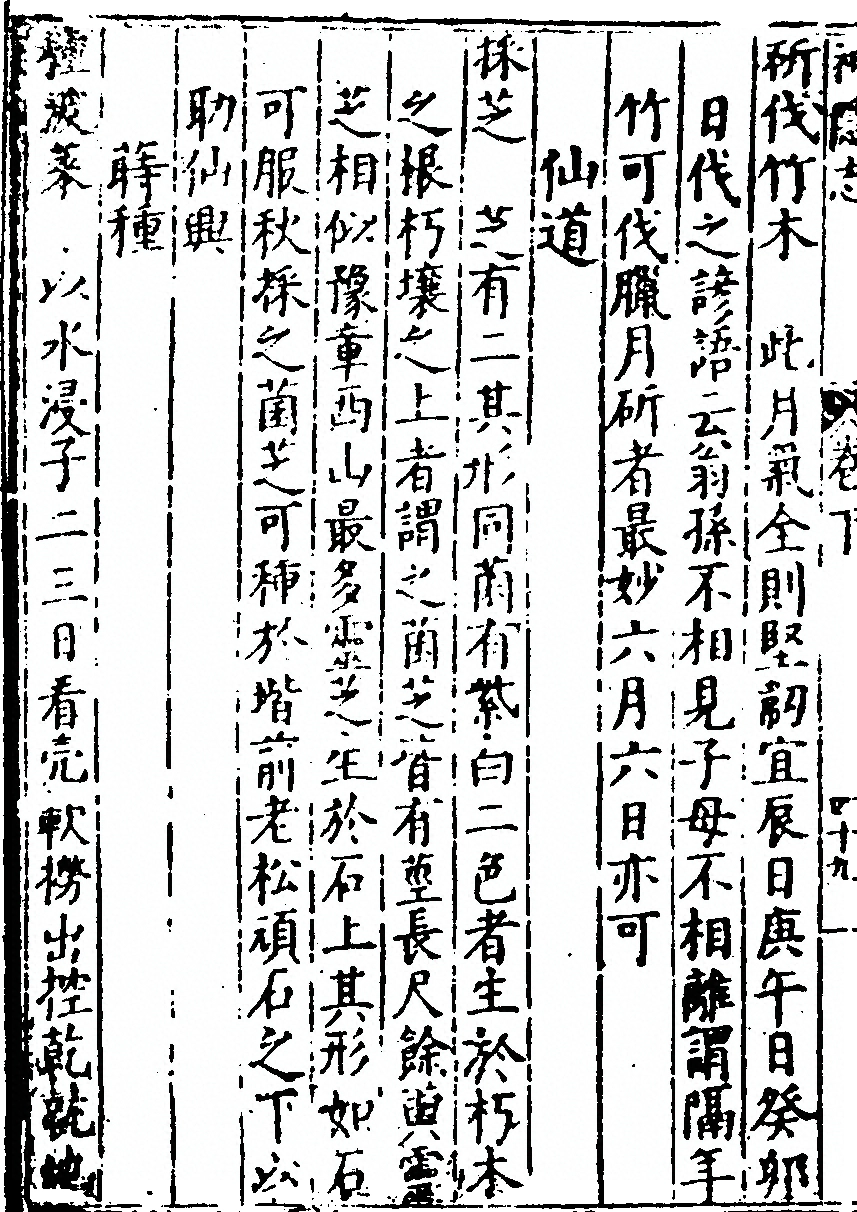 神隱志 卷下 四十九
斫伐竹木 此月氣全則堅韌宜辰日庚午日癸卯
日伐之諺語云翁孫不相見子母不相離謂隔年
竹可伐臘月斫者最妙六月六日亦可
仙道
採芝 芝有二其形同菌有紫白二色者生於朽木
之根朽壤之上者謂之菌芝皆有莖長尺餘與靈
芝相似豫章西山最多靈芝生於石上其形如石
可服秋採之菌芝可種於堦前老松頑石之下以
助仙興
蒔種
種菠菜 以水浸子二三日看壳軟撈出控乾就地